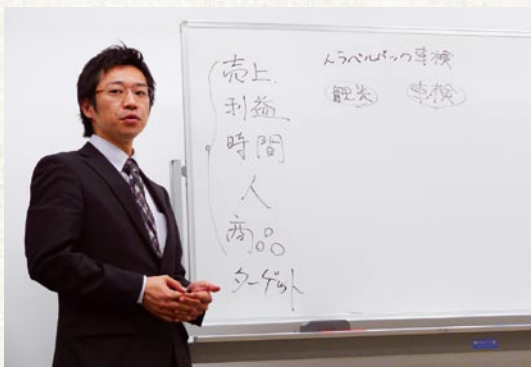 売上
利益
時間
人
商品
ターゲット
トラベルパックの車検
観光 車検